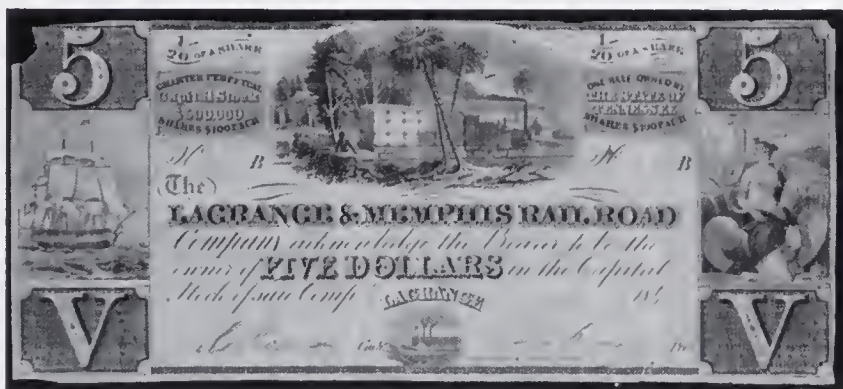 5
1/20 OF A SHARE
1/20 OF A SHARE
5
CHARTER PERPETUAL
Capital Stock
$500,000
SHARES $100 EACH
ONE HALF OWNED BY
THE STATE OF
TENNESSEE
SHARES $100 EACH
B
B
(The)
LAGRANGE & MEMPHIS RAIL ROAD
Company acknowledge the Bearer to be the
owner of FIVE DOLLARS in the Capital
Stock of said Comp
LAGRANGE
18
V
V